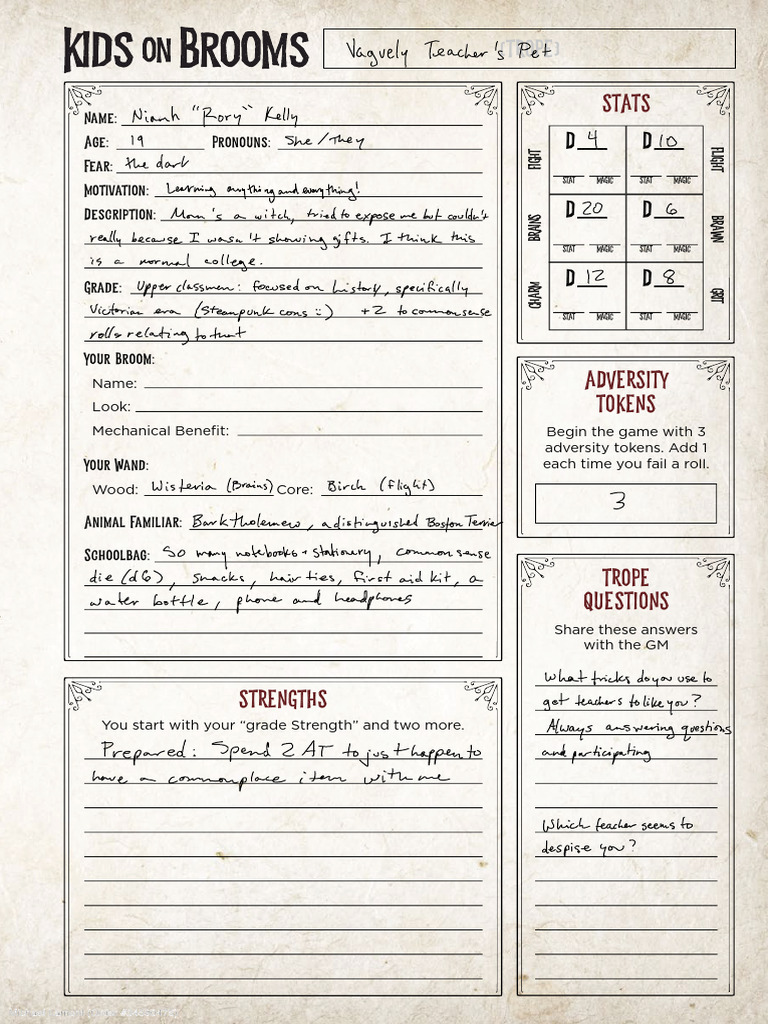 KIDS ON BROOMS
Vaguely Teacher's Pet
NAME: Nianh "Rory" Kelly
AGE: 19 PRONOUNS: She / They
FEAR: the dark
MOTIVATION: Learning anything and everything!
DESCRIPTION: Mom's a witch, tried to expose me but couldn't
really because I wasn't showing gifts. I think this
is a normal college.
GRADE: Upper classmen: focused on history, specifically
Victorian era (Steampunk cons :) +2 to commonsense
rolls relating to that
YOUR BROOM:
Name:
Look:
Mechanical Benefit:
YOUR WAND:
Wood: Wisteria (Brains) Core: Birch (flight)
ANIMAL FAMILIAR: Barktholemew, a distinguished Boston Terrier
SCHOOLBAG: So many notebooks + stationery, common sense
die (d6), snacks, hair ties, first aid kit, a
water bottle, phone and headphones
STRENGTHS
You start with your "grade Strength" and two more.
Prepared: Spend 2 AT to just happen to
have a commonplace item with me
STATS
FIGHT D 4 D 10 FLIGHT
STAT MAGIC STAT MAGIC
BRAINS D 20 D 6 BRAWN
STAT MAGIC STAT MAGIC
CHARM D 12 D 8 GRIT
STAT MAGIC STAT MAGIC
ADVERSITY
TOKENS
Begin the game with 3
adversity tokens. Add 1
each time you fail a roll.
3
TROPE
QUESTIONS
Share these answers
with the GM
What tricks do you use to
get teachers to like you?
Always answering questions
and participating
Which teacher seems to
despise you?